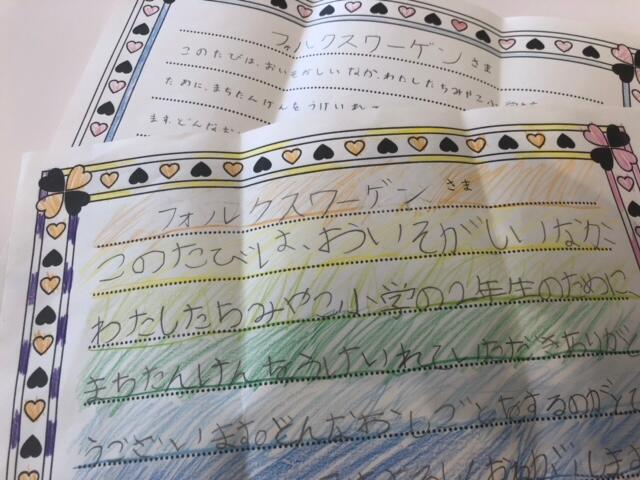 フォルクスワーゲン さま
このたびは、おいそがしいなか、わたしたちみやこ小
ために、まちたんけんをうけいれ
ます。どんなお
フォルクスワーゲン さま
このたびは、おういそがしいなか、
わたしたちみやこ小学の2年生のために
まちたんけんをうけいれていただきありが
うございます。どんなおしごとをするのがとて
よろしくおねがいしま